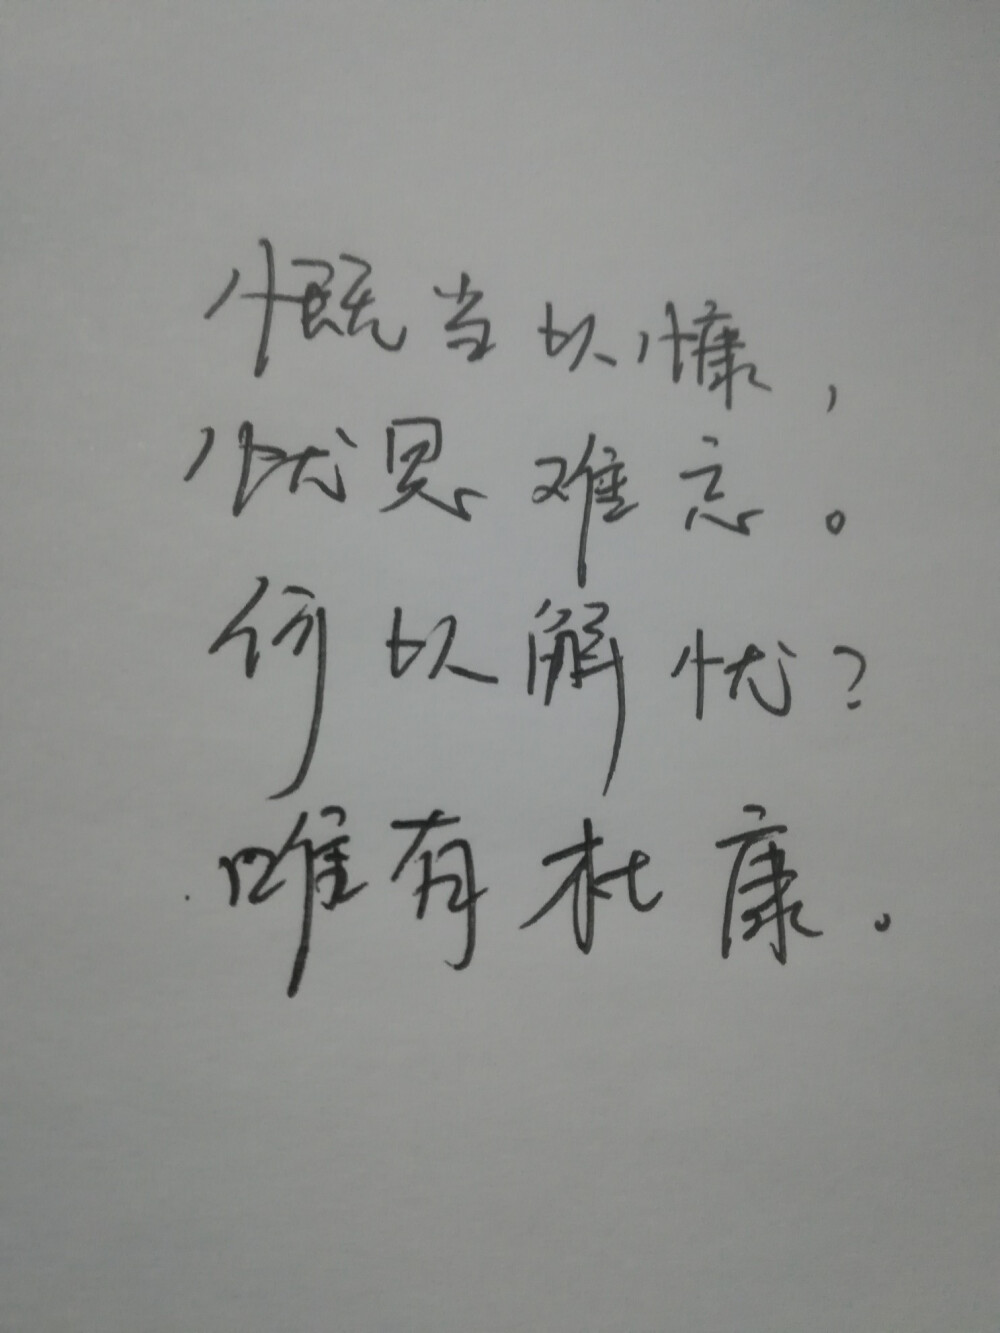 慨当以慷，
忧思难忘。
何以解忧？
唯有杜康。